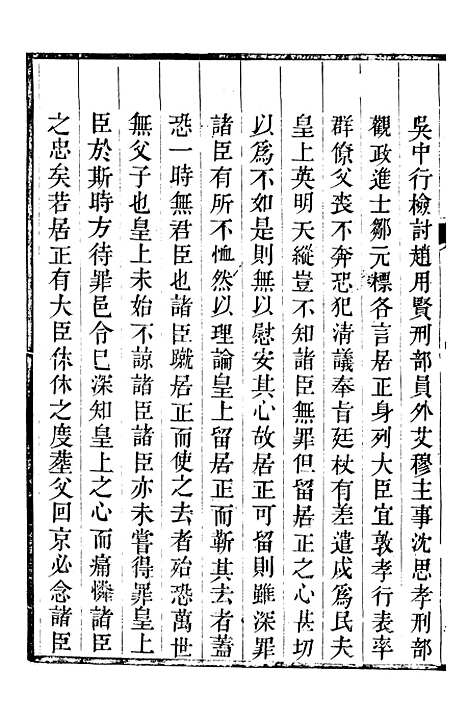 吳中行檢討趙用賢刑部員外艾穆主事沈思孝刑部
觀政進士鄒元標各言居正身列大臣宜敦孝行表率
群僚父喪不奔恐犯清議奉旨廷杖有差遣戍爲民夫
皇上英明天縱豈不知諸臣無罪但留居正之心甚切
以爲不如是則無以慰安其心故居正可留則雖深罪
諸臣有所不恤然以理論皇上留居正而靳其去者蓋
恐一時無君臣也諸臣蹴居正而使之去者殆恐萬世
無父子也皇上未始不諒諸臣諸臣亦未嘗得罪皇上
臣於斯時方待罪邑令已深知皇上之心而痛憐諸臣
之忠矣若居正有大臣休休之度塟父回京必念諸臣